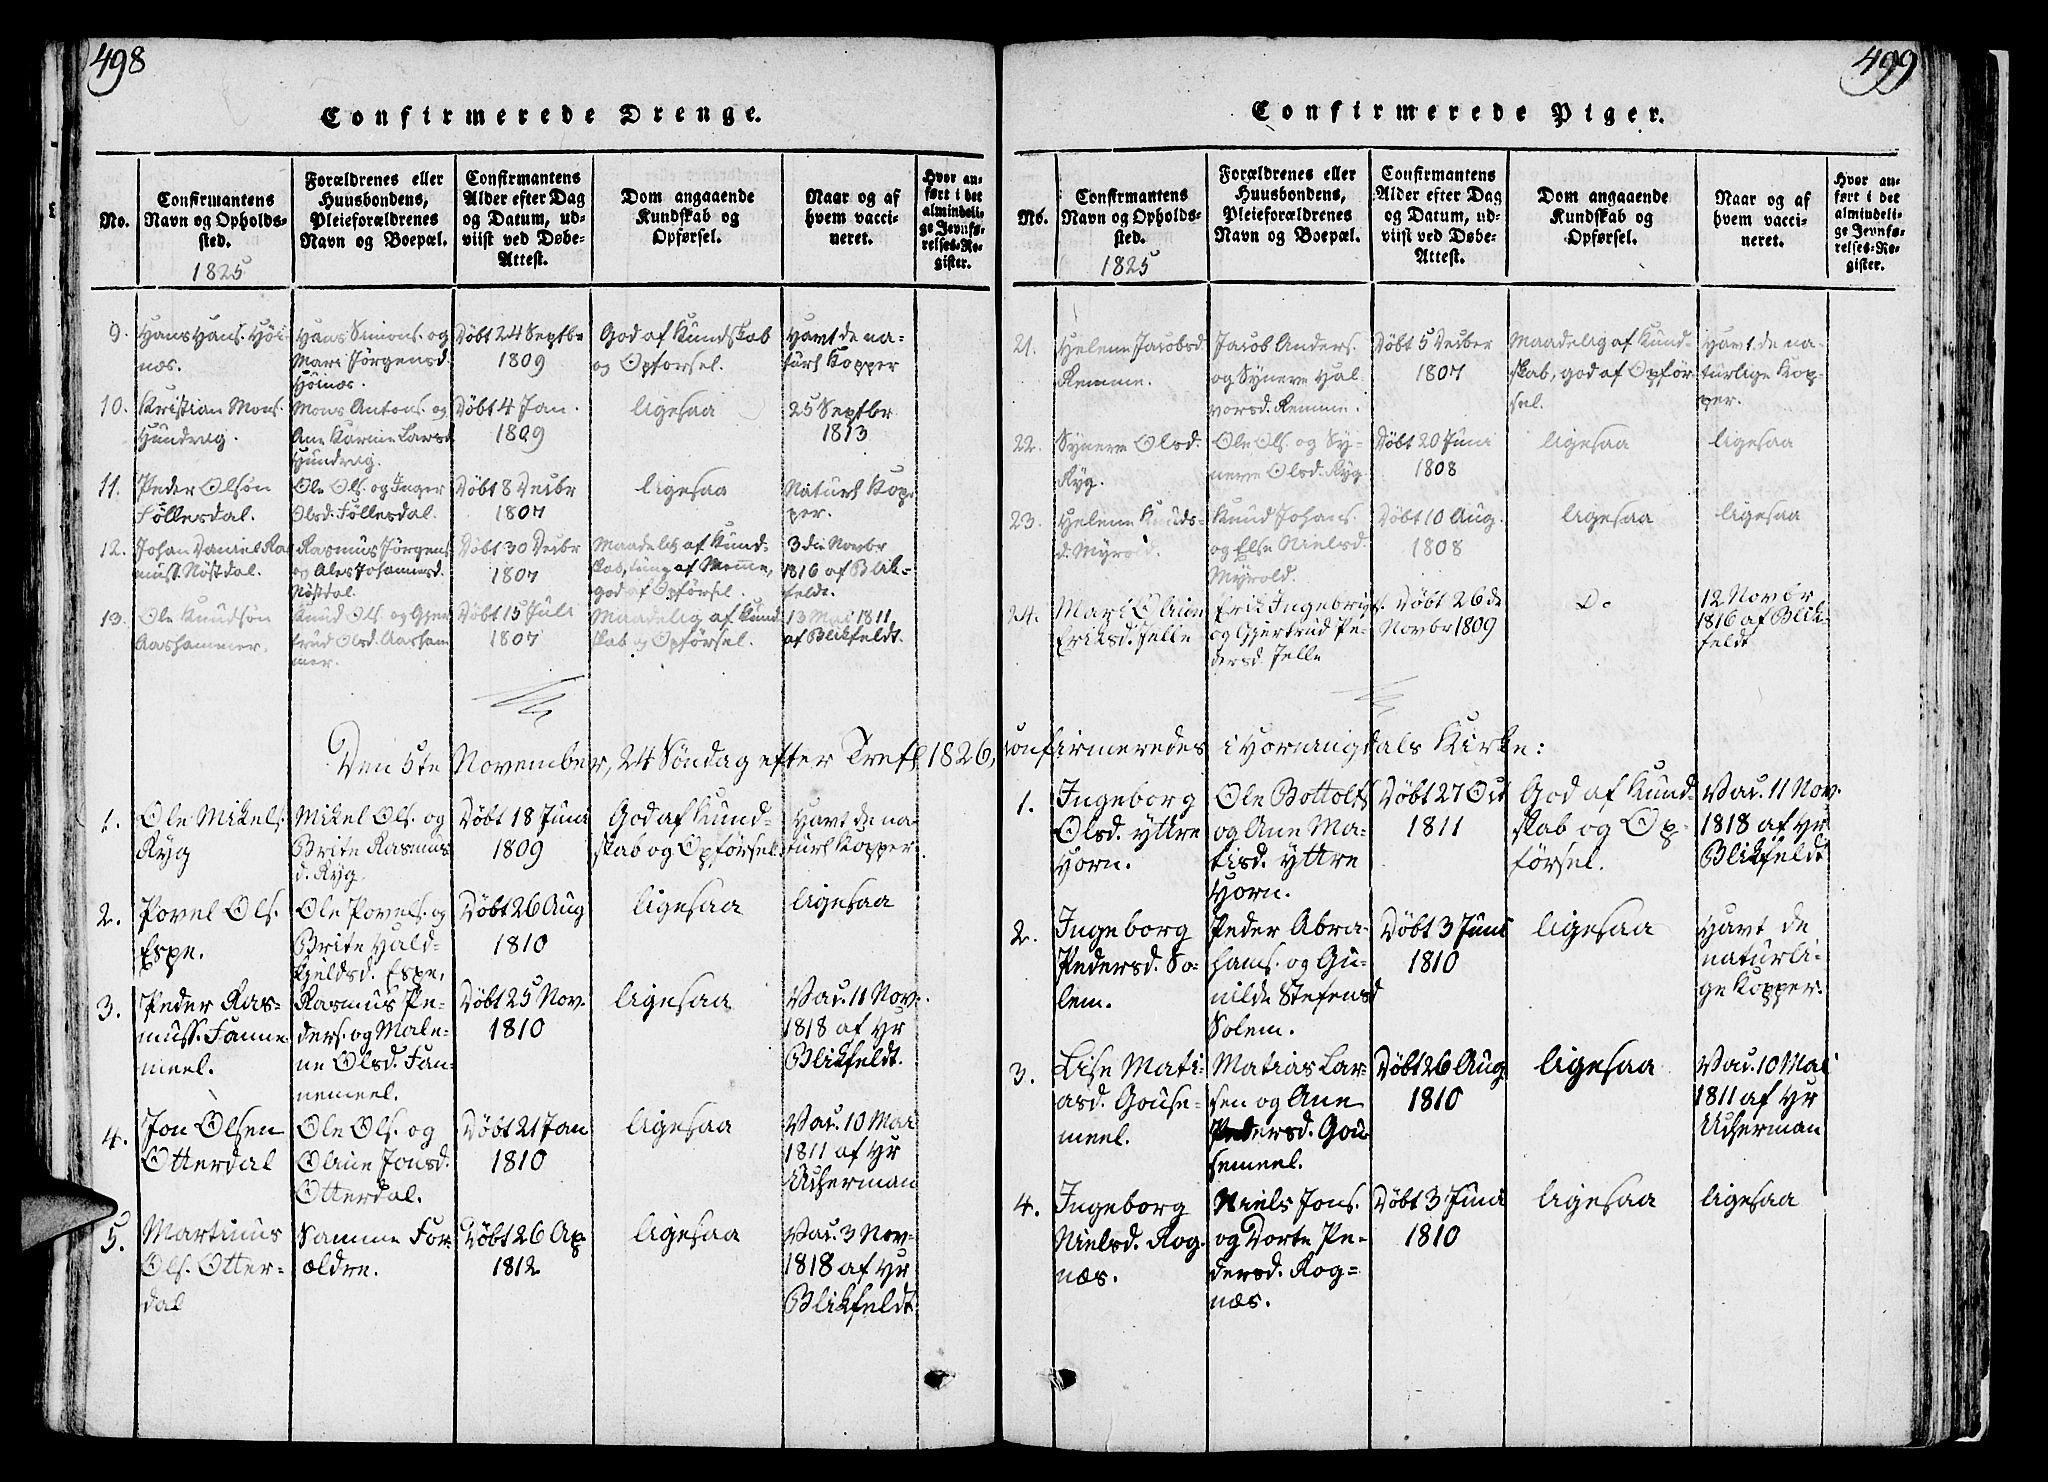 498
Confirmerede Drenge.
No.
Confirmantens
Navn og Opholds-
sted.
1825
Forældrenes eller
Huusbondens,
Pleieforældrenes
Navn og Boepæl.
Confirmantens
Alder efter Dag
og Datum, ud-
viist ved Døbe-
Attest.
Dom angaaende
Kundskab og
Opførsel.
Naar og af
hvem vacci-
neret.
Hvor an-
ført i det
almindeli-
ge Jevnfø-
relses-Re-
gister.
9.
Hans Hans. Höi-
næs.
Hans Simons. og
Mari Jörgensd.
Höinæs.
Döbt 24 Septbr
1809
God af Kundskab
og Opförsel.
Havt de na-
turl Kopper
10.
Kristian Mons.
Hundvag.
Mons Antons. og
Ane Karine Larsd
Hundvag.
Döbt 4 Jan.
1809
ligesaa
25 Septbr
1813
11.
Peder Olsön
Föllesdal.
Ole Ols. og Inger
Olsd. Föllesdal.
Döbt 8 Decbr
1807
ligesaa
Naturl Kop-
per.
12.
Johan Daniel Ras
muss. Nöstdal.
Rasmus Jörgens
og Ales Johannesd.
Nöstdal.
Döbt 30 Decbr
1807
Maadelig af Kund-
skab, tung af Nemme,
god af Opförsel.
3die Novbr
1816 af Blik-
feldt.
13.
Ole Knudsön
Aashammer.
Knud Ols. og Gjer
trud Olsd. Aasham
mer.
Döbt 15 Juli
1807
Maadelig af Kund
skab og Opförsel.
13 Mai 1811
af Blikfeldt.
Den 5te November, 24 Söndag efter Tref. 1826,
1.
Ole Mikels.
Ryg
Mikel Ols. og
Brite Rasmus
d. Ryg.
Döbt 18 Juni
1809
God af Kund-
skab og Opförsel.
Havt de na-
turl Kopper.
2.
Povel Ols.
Espe.
Ole Povels. og
Brite Hald-
kjeldsd. Espe.
Döbt 26 Aug
1810
ligesaa
ligesaa
3.
Peder Ras-
muss. Fanne-
meel.
Rasmus Pe-
ders. og Male-
ne Olsd. Fan-
nemeel.
Döbt 25 Nov.
1810
ligesaa
Vac. 11 Nov.
1818 af Hr
Blikfeldt.
4.
Jon Olsen
Otterdal
Ole Ols. og
Oline Jonsd.
Otterdal.
Döbt 21 Jan
1810
ligesaa
Vac. 10 Mai
1811 af Hr
Ucherman
5.
Martinus
Ols. Otter-
dal
Samme For-
ældre.
Döbt 26 Ap
1812
ligesaa
Vac. 3 Nov-
1818 af Hr
Blikfeldt.
499
Confirmerede Piger.
No.
Confirmantens
Navn og Opholds-
sted.
1825
Forældrenes eller
Huusbondens,
Pleieforældrenes
Navn og Boepæl.
Confirmantens
Alder efter Dag
og Datum, ud-
viist ved Døbe-
Attest.
Dom angaaende
Kundskab og
Opførsel.
Naar og af
hvem vacci-
neret.
Hvor an-
ført i det
almindeli-
ge Jevnfø-
relses-Re-
gister.
21.
Helene Jacobsd.
Remme.
Jacob Anders.
og Synneve Hal
vorsd. Remme.
Döbt 5 Decber
1807
Maadelig af Kund-
skab, god af Opför
sel.
Havt de na-
turlige Kop-
per.
22.
Synneve Olsd.
Ryg.
Ole Ols og Sy-
neve Olsd. Ryg
Döbt 20 Juni
1808
ligesaa
ligesaa
23.
Helene Knuds-
d. Myrold.
Knud Johans.
og Else Nielsd.
Myrold.
Döbt 10 Aug.
1808
ligesaa
ligesaa
24.
Mari Oline
Eriksd. Jelle
Erik Ingebrigs.
og Gjertrud Pe-
dersd. Jelle
Döbt 26 de
Novbr 1809
Do
12 Novbr
1816 af Blik-
feldt
confirmeredes i Horningdals Kirke:
1.
Ingeborg
Olsd. yttre
Horn.
Ole Bottolfs
og Ane Ma-
tisd. yttre
Horn.
Döbt 27 Oct
1811
God af Kund-
skab og Op-
försel.
Vac. 11 Nov.
1818 af Hr
Blikfeldt
2.
Ingeborg
Pedersd. So-
lem.
Peder Abra-
hams. og Gu-
nilde Stefensd
Solem.
Döbt 3 Juni
1810
ligesaa
Havt de
naturli-
ge Kopper.
3.
Lise Mati-
asd. Gouse-
meel.
Matias Lar-
sen og Ane
Pedersd. Gou
semeel.
Döbt 26 Aug
1810
ligesaa
Vac. 10 Mai
1811 af Hr
Ucherman
4.
Ingeborg
Nielsd. Rog-
næs.
Niels Jons.
og Dorte Pe-
dersd. Rog-
næs.
Döbt 3 Juni
1810
ligesaa
ligesaa